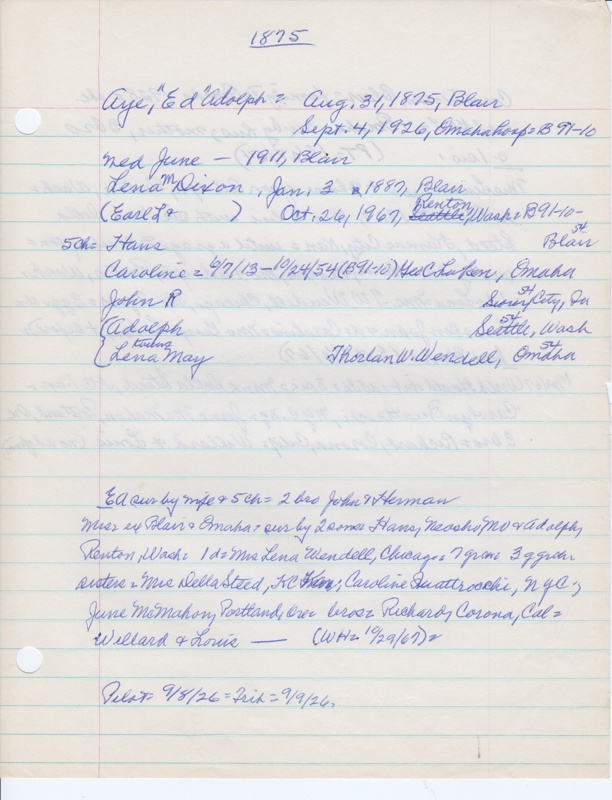 1875
Aye, "Ed" Adolph = Aug. 31, 1875, Blair
Sept. 4, 1926, Omaha hosp = B 91-10
med June - 1911, Blair
Lena M Dixon, Jan. 3 1887, Blair
(Earl L & ) Oct. 26, 1967, Seattle Renton, Wash = B91-10-
5ch = Hans Blair 54
Caroline = 6/7/13 - 10/24/54 (B91-10) Geo C Luken, Omaha
John R Sioux City, Ia 54
(Adolph Seattle, Wash 54
(Lena May twins Thorlan W. Wendell, Omaha 54
Ed sur by wife & 5 ch = 2 bro John & Herman
Mrs = Blair & Omaha = sur by 2 sons = Hans, Neosho, MO & Adolph,
Renton, Wash = 1 d = Mrs Lena Wendell, Chicago = 7 gran 3 g gran =
sisters = Mrs Della Steed, KC Caroline Quattrocchi, NYC =
June McMahon, Portland, Ore = bros = Richard, Corona, Cal =
Willard & Louis — (WH = 10/29/67) =
Pilot = 9/8/26 = Trib = 9/9/26 =